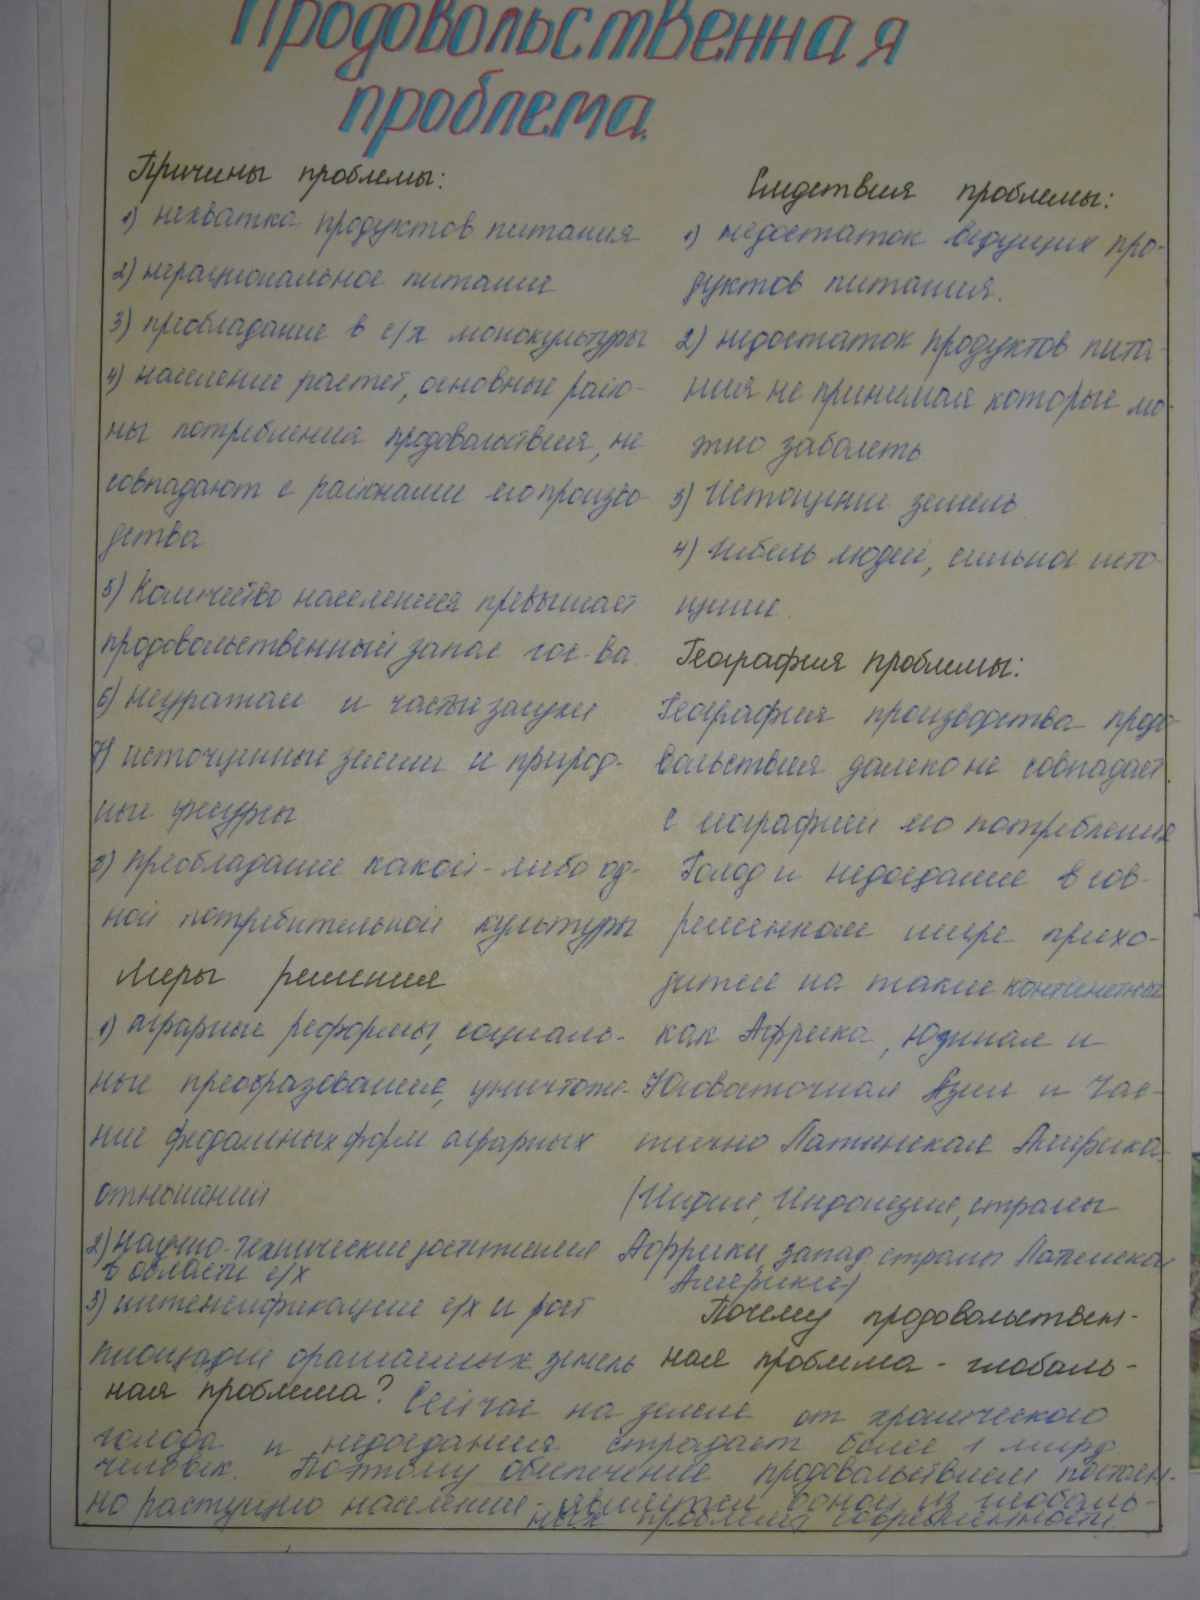 Продовольственная
проблема.
Причины проблемы:
1) нехватка продуктов питания
2) нерациональное питание
3) преобладание в с/х монокультуры
4) население растет, основные райо-
ны потребления продовольствия, не
совпадают с районами его произво-
дства
5) Количество населения превышает
продовольственный запас гос-ва.
6) неурожаи и частые засухи
7) источенные земли и природ-
ные
8) преобладание какой-либо од-
ной потребительной культуры
Меры решения
1) аграрные реформы, социаль-
ные преобразования, уничтоже-
ние феодальных форм аграрных
отношений
2) научно-технические достижения
в области с/х
3) интенсификация с/х и рост
площадей орошаемых земель
Следствия проблемы:
1) недостаток ведущих про-
дуктов питания.
2) недостаток продуктов пита-
ния не принимая которые мо-
жно заболеть
3) Истощение земель
4) Гибель людей, сильное исто-
щение.
География проблемы:
География производства продо-
вольствия далеко не совпадает
с географией его потребления
Голод и недоедание в сов-
ременном мире прихо-
дится на такие континенты
как Африка, Южная и
Юговосточная Азия и Час-
тично Латинская Америка.
(Индия, Индонезия, страны
Африки, запад страны Латинской
Америки)
Почему продовольствен-
ная проблема - глобаль-
ная проблема? Сейчас на земле от хронического
голода и недоедания страдает более 1 млрд
человек. Поэтому обеспечение продовольствием постоян-
но растущего населения - является одной из глобаль-
ных проблем современности